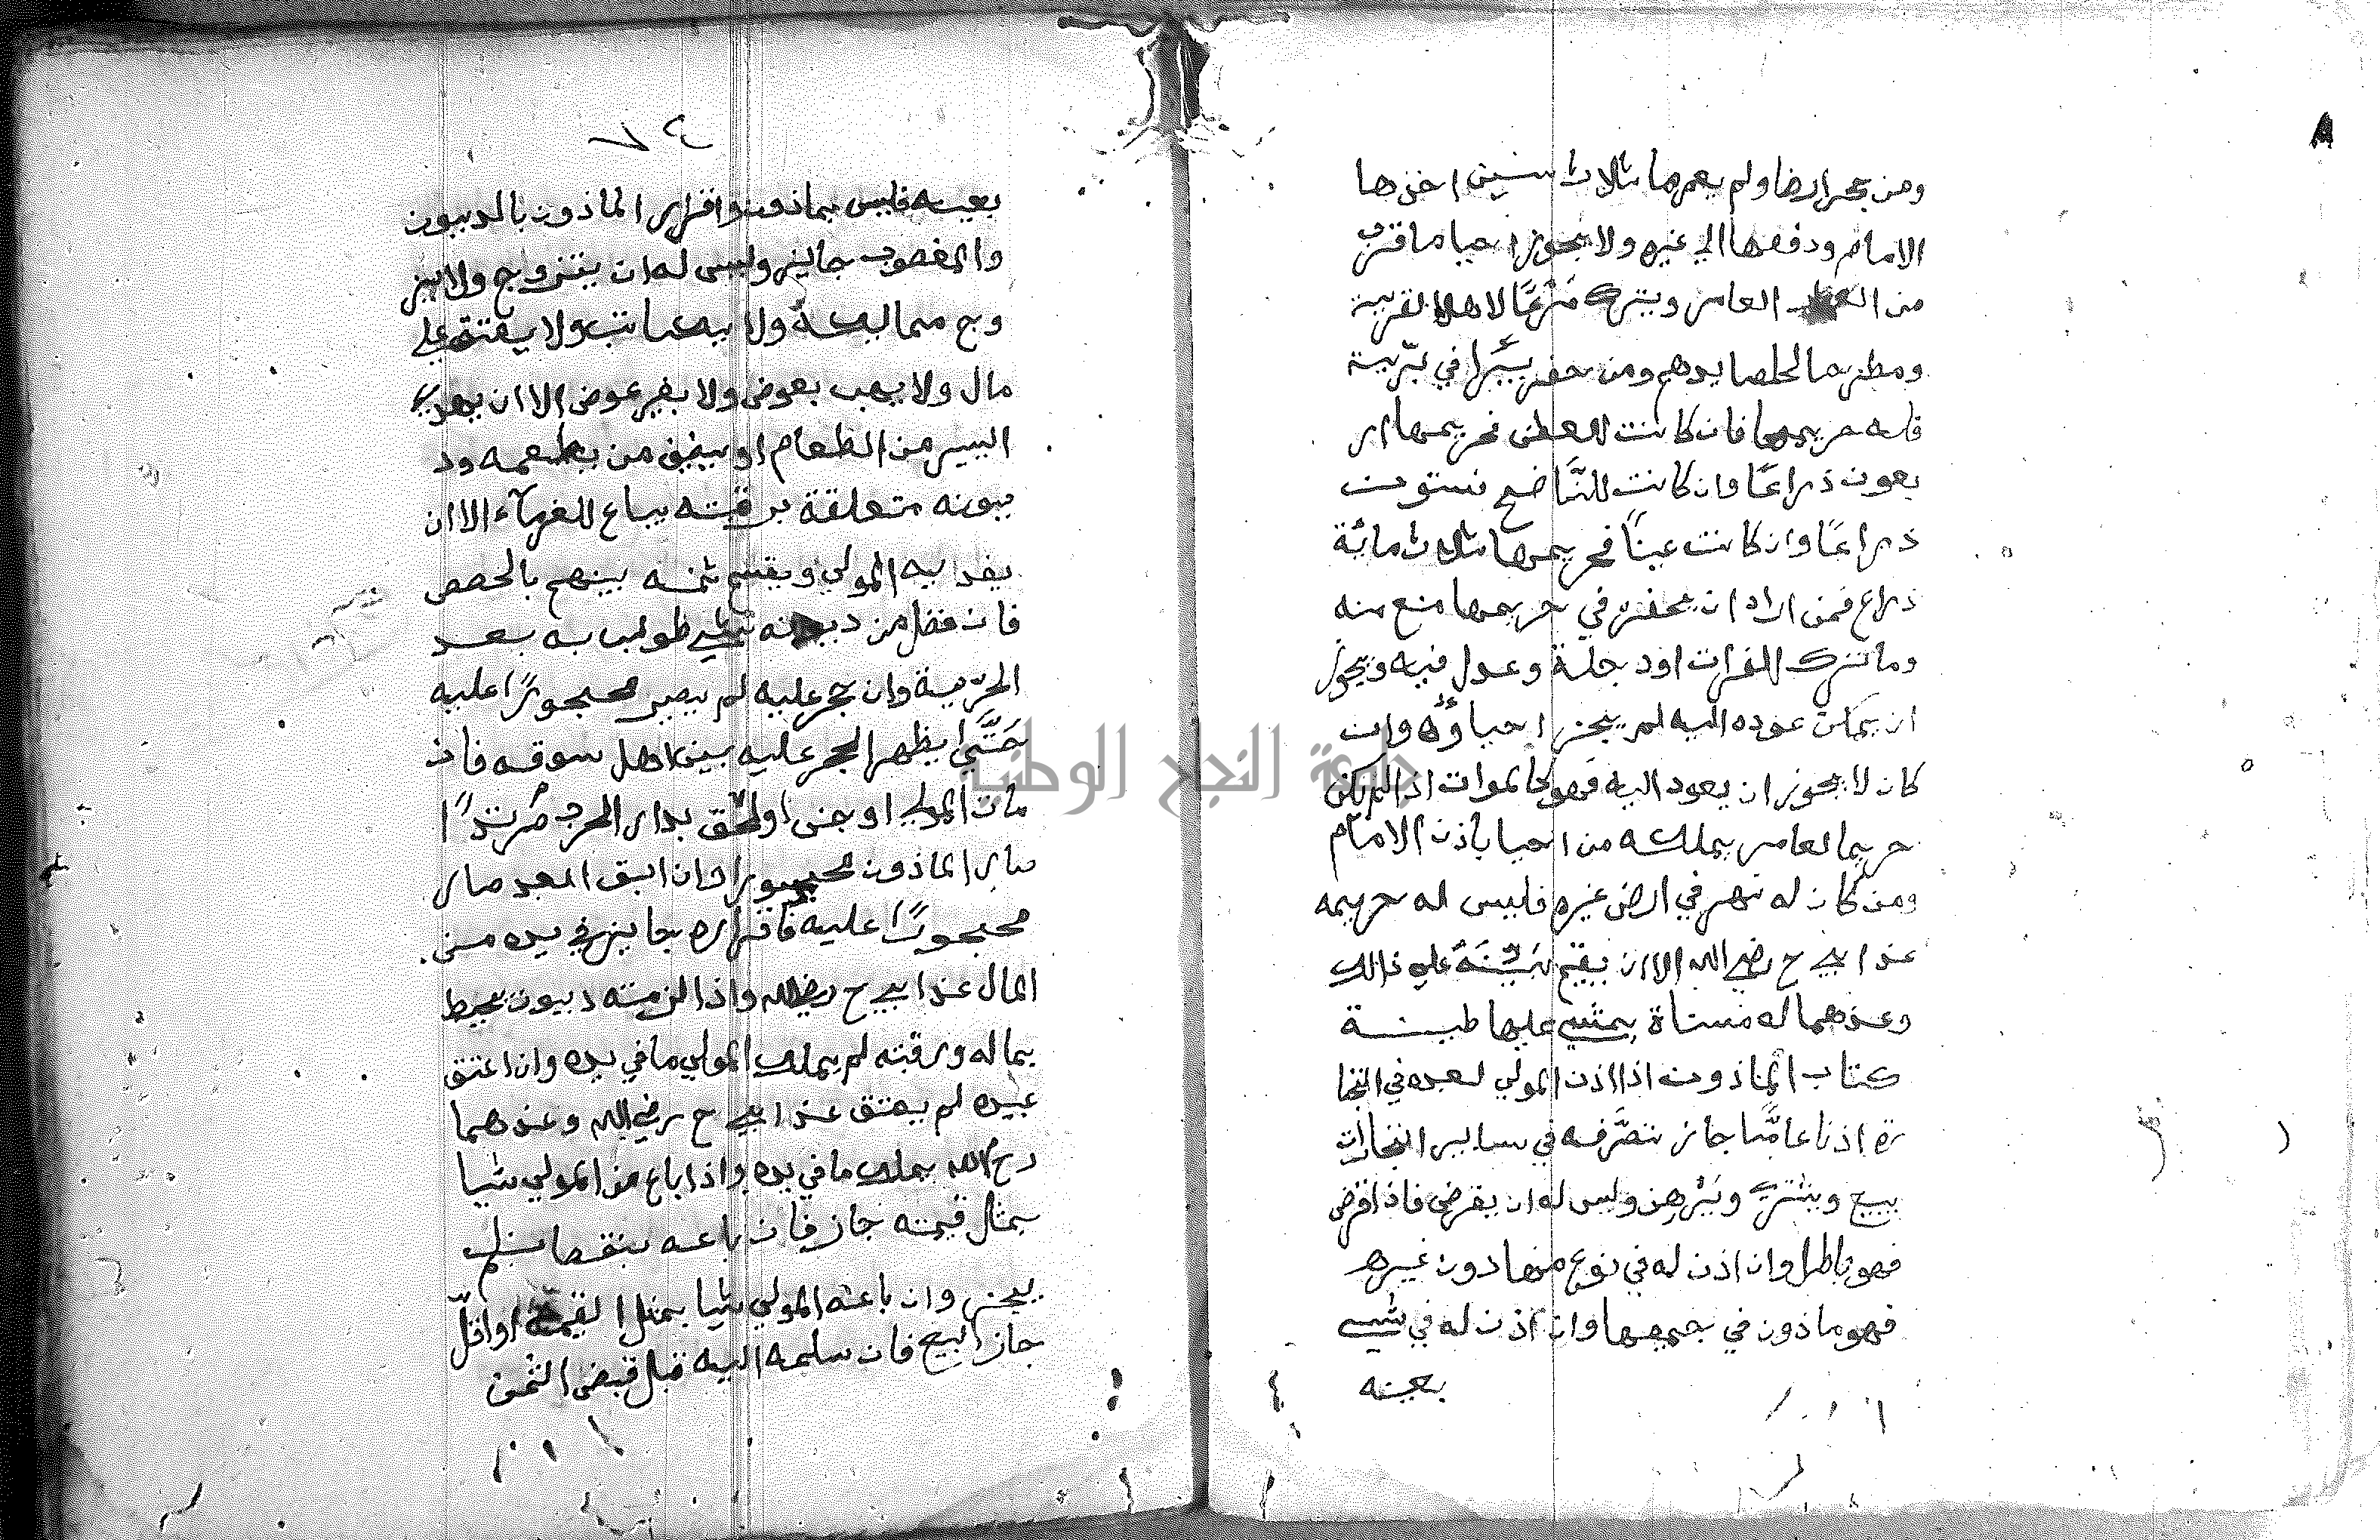 ومن حجر ارضا ولم يعمرها ثلاث سنين اخذها
الامام ودفعها الي غيره ولا يجوز احيا ما قرب
من العامر ويترك مرعًا لاهل القرية
ومطرحا لحصايدهم ومن حفر بيرًا في برّية
فله حريمها فان كانت للعطن فحريمها ار
بعون ذراعًا وان كانت للنّاضح فستون
ذراعًا وان كانت عينًا فحريمها ثلاث مائة
ذراع فمن اراد ان يحفر في حريمها منع منه
وما ترك الفرات او دجلة وعدل فيه ويجوز
ان يمكن عوده اليه لم يجز احياؤه وان
كان لا يجوز ان يعود اليه فهو كالموات اذا لم يكن
حريما لعامر يملكه من احيا باذن الامام
ومن كان له نهر في ارض غيره فليس له حريمه
عند ابي ح رضي الله الا ان يقيم بيّنة علي ذالك
وعندهما له مسناة يمشي عليها طينة
كتاب الماذون اذا اذن المولي لعبده في التجا
رة اذنا عامًّا جاز تصَرّفه في ساير التجارات
يبيع ويشتري ويَرْهِن وليس له ان يقرض فاذا اقرض
فهو باطل وان اذن له في نوع منها دون غيره
فهو ماذون في جميعها وان اذن له في شيي
بعينه
٧٤
بعينه فليس بماذون واقرار الماذون بالديون
والمغصوب جايز وليس له ان يتزوج ولا يز
وج مماليكه ولا يكاتب ولا يعتق علي
مال ولا يهب بعوض ولا بغير عوض الا ان يهدي
اليسير من الطعام او يضيف من يطعمه ود
يونه متعلقة برقبته يباع للغرمآء الا ان
يفديه المولي ويقسم ثمنه بينهم بالحصص
فان فضل من ديونه شيي طولب به بعد
الحرّية وان حجر عليه لم يصر محجورًا عليه
حَتّي يظهر الحجر عليه بين اهل سوقه فان
مات المولي او جن او لحق بدار الحرب مُرتدًا
صار الماذون محجورا وان ابق العبد صار
محجورًا عليه فاقراره جايز في يده من
المال عند ابي ح رضي الله واذا لزمته ديون تحيط
بماله ورقبته لم يملك المولي ما في يده وان اعتق
عبيده لم يعتق عند ابي ح رضي الله وعندهما
رح الله يملك ما في يده واذا باع من المولي شيا
بمثل قيمته جاز فان باعه بنقصان لم
يجز وان باعه المولي شيا بمثل القيمة او اقلّ
جاز البيع فان سلمه اليه قبل قبض الثمن
جامعة النجاح الوطنية